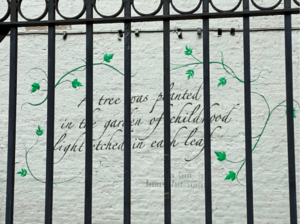 A tree was planted
in the garden of childhood
light etched in each leaf